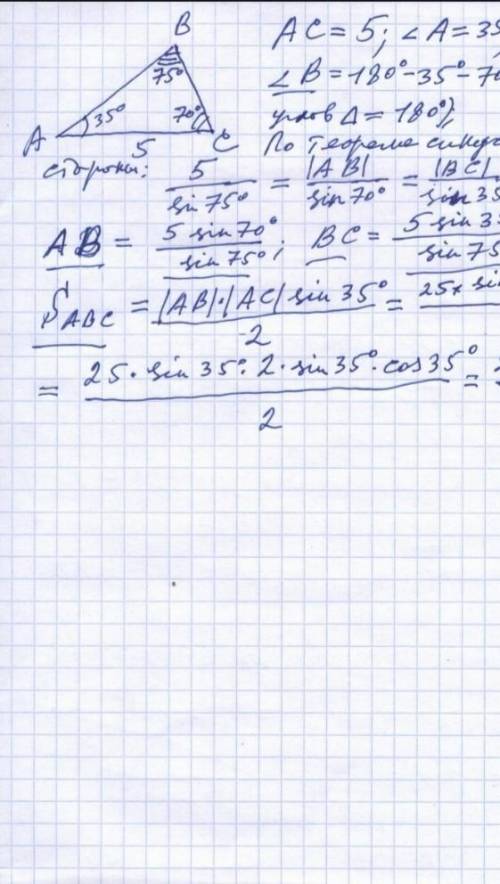 B
AC = 5; ∠A = 35
75°
∠B = 180° - 35° - 70
35° 70°
углов Δ = 180°
A 5 C
По теореме синус
стороны: 5/sin 75° = |AB|/sin 70° = |BC|/sin 35°
AB = 5 sin 70°/sin 75°; BC = 5 sin 3/sin 75
S ABC = |AB|·|AC| sin 35°/2 = 25 × sin
= 25 · sin 35° · 2 · sin 35° · cos 35°/2 =